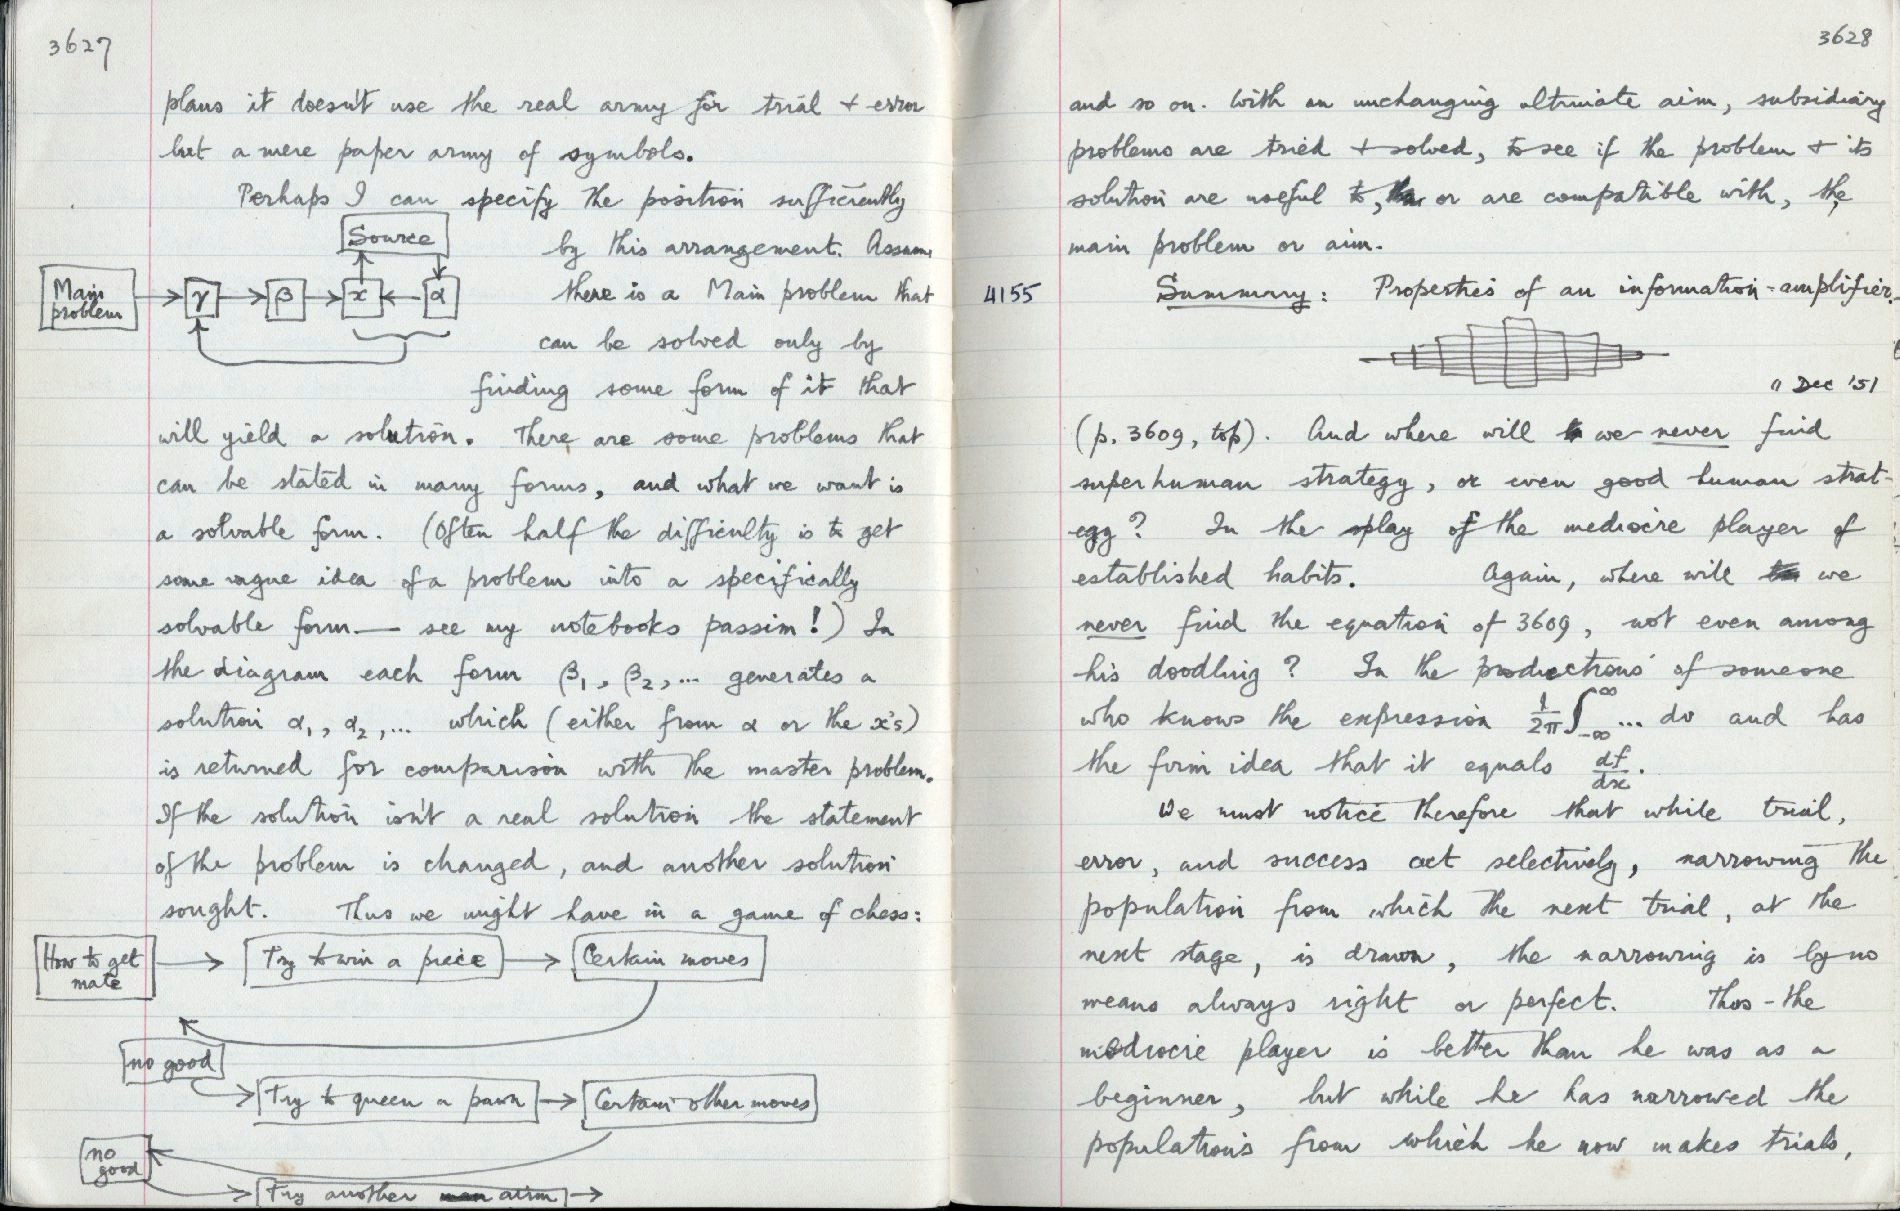 3627
plans it doesn't use the real army for trial + error
but a mere paper army of symbols.
Perhaps I can specify the position sufficiently
Source
by this arrangement. Assume
Main
problem
γ
β
x
α
there is a Main problem that
can be solved only by
finding some form of it that
will yield a solution. There are some problems that
can be stated in many forms, and what we want is
a solvable form. (Often half the difficulty is to get
some vague idea of a problem into a specifically
solvable form — see my notebooks passim!) In
the diagram each form β₁, β₂, ... generates a
solution α₁, α₂, ... which (either from α or the x's)
is returned for comparison with the master problem.
If the solution isn't a real solution the statement
of the problem is changed, and another solution
sought. Thus we might have in a game of chess:
How to get
mate
Try to win a piece
Certain moves
no good
Try to queen a pawn
Certain other moves
no
good
Try another aim
3628
and so on. With an unchanging ultimate aim, subsidiary
problems are tried + solved, to see if the problem + its
solution are useful to, or are compatible with, the
main problem or aim.
4155
Summary: Properties of an information-amplifier.
11 Dec '51
(p. 3609, top). And where will we never find
superhuman strategy, or even good human strat-
egy? In the play of the mediocre player of
established habits. Again, where will we
never find the equation of 3609, not even among
his doodling? In the productions of someone
who knows the expression 1/2π ∫_-∞^∞ ... dv and has
the firm idea that it equals df/dx.
We must notice therefore that while trial,
error, and success act selectively, narrowing the
population from which the next trial, at the
next stage, is drawn, the narrowing is by no
means always right or perfect. Thus - the
mediocre player is better than he was as a
beginner, but while he has narrowed the
populations from which he now makes trials,